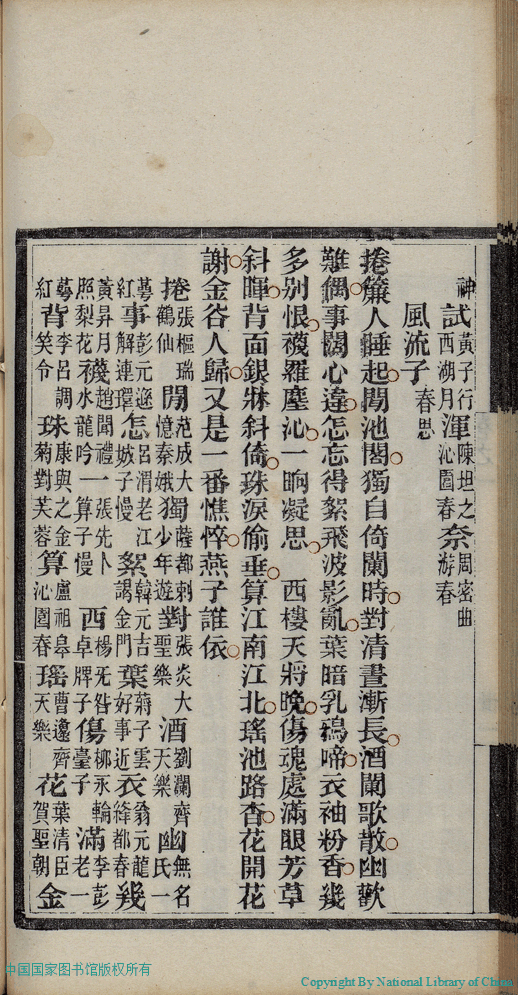 神試黃子行西湖月渾陳坦之沁園春柰周密曲游春
風流子春思
捲簾人睡起閒池閣獨自倚闌時對清晝漸長酒闌歌散幽歡
難偶事闊心違怎忘得絮飛波影亂葉暗乳鴉啼衣袖粉香幾
多別恨襪羅塵沁一晌凝思　西樓天將晚傷魂處滿眼芳草
斜暉背面銀牀斜倚珠淚偷垂算江南江北瑤池路杳花開花
謝金谷人歸又是一番憔悴燕子誰依
捲張樞瑞鶴仙閒范成大憶秦娥獨薩都剌少年游對張炎大聖樂酒劉瀾齊天樂幽無名氏一
萼紅事彭元遜解連環怎呂渭老江城子慢絮韓元吉謁金門葉蔣子雲好事近衣翁元龍絳都春幾
黃昇月照梨花襪趙聞禮水龍吟一張先卜算子慢西楊旡咎卓牌子傷柳永輪臺子滿李彭老一
萼紅背李呂調笑令珠康與之金菊對芙蓉算盧祖皋沁園春瑤曹邍齊天樂花葉清臣賀聖朝金
中国国家图书馆版权所有
Copyright By National Library of China